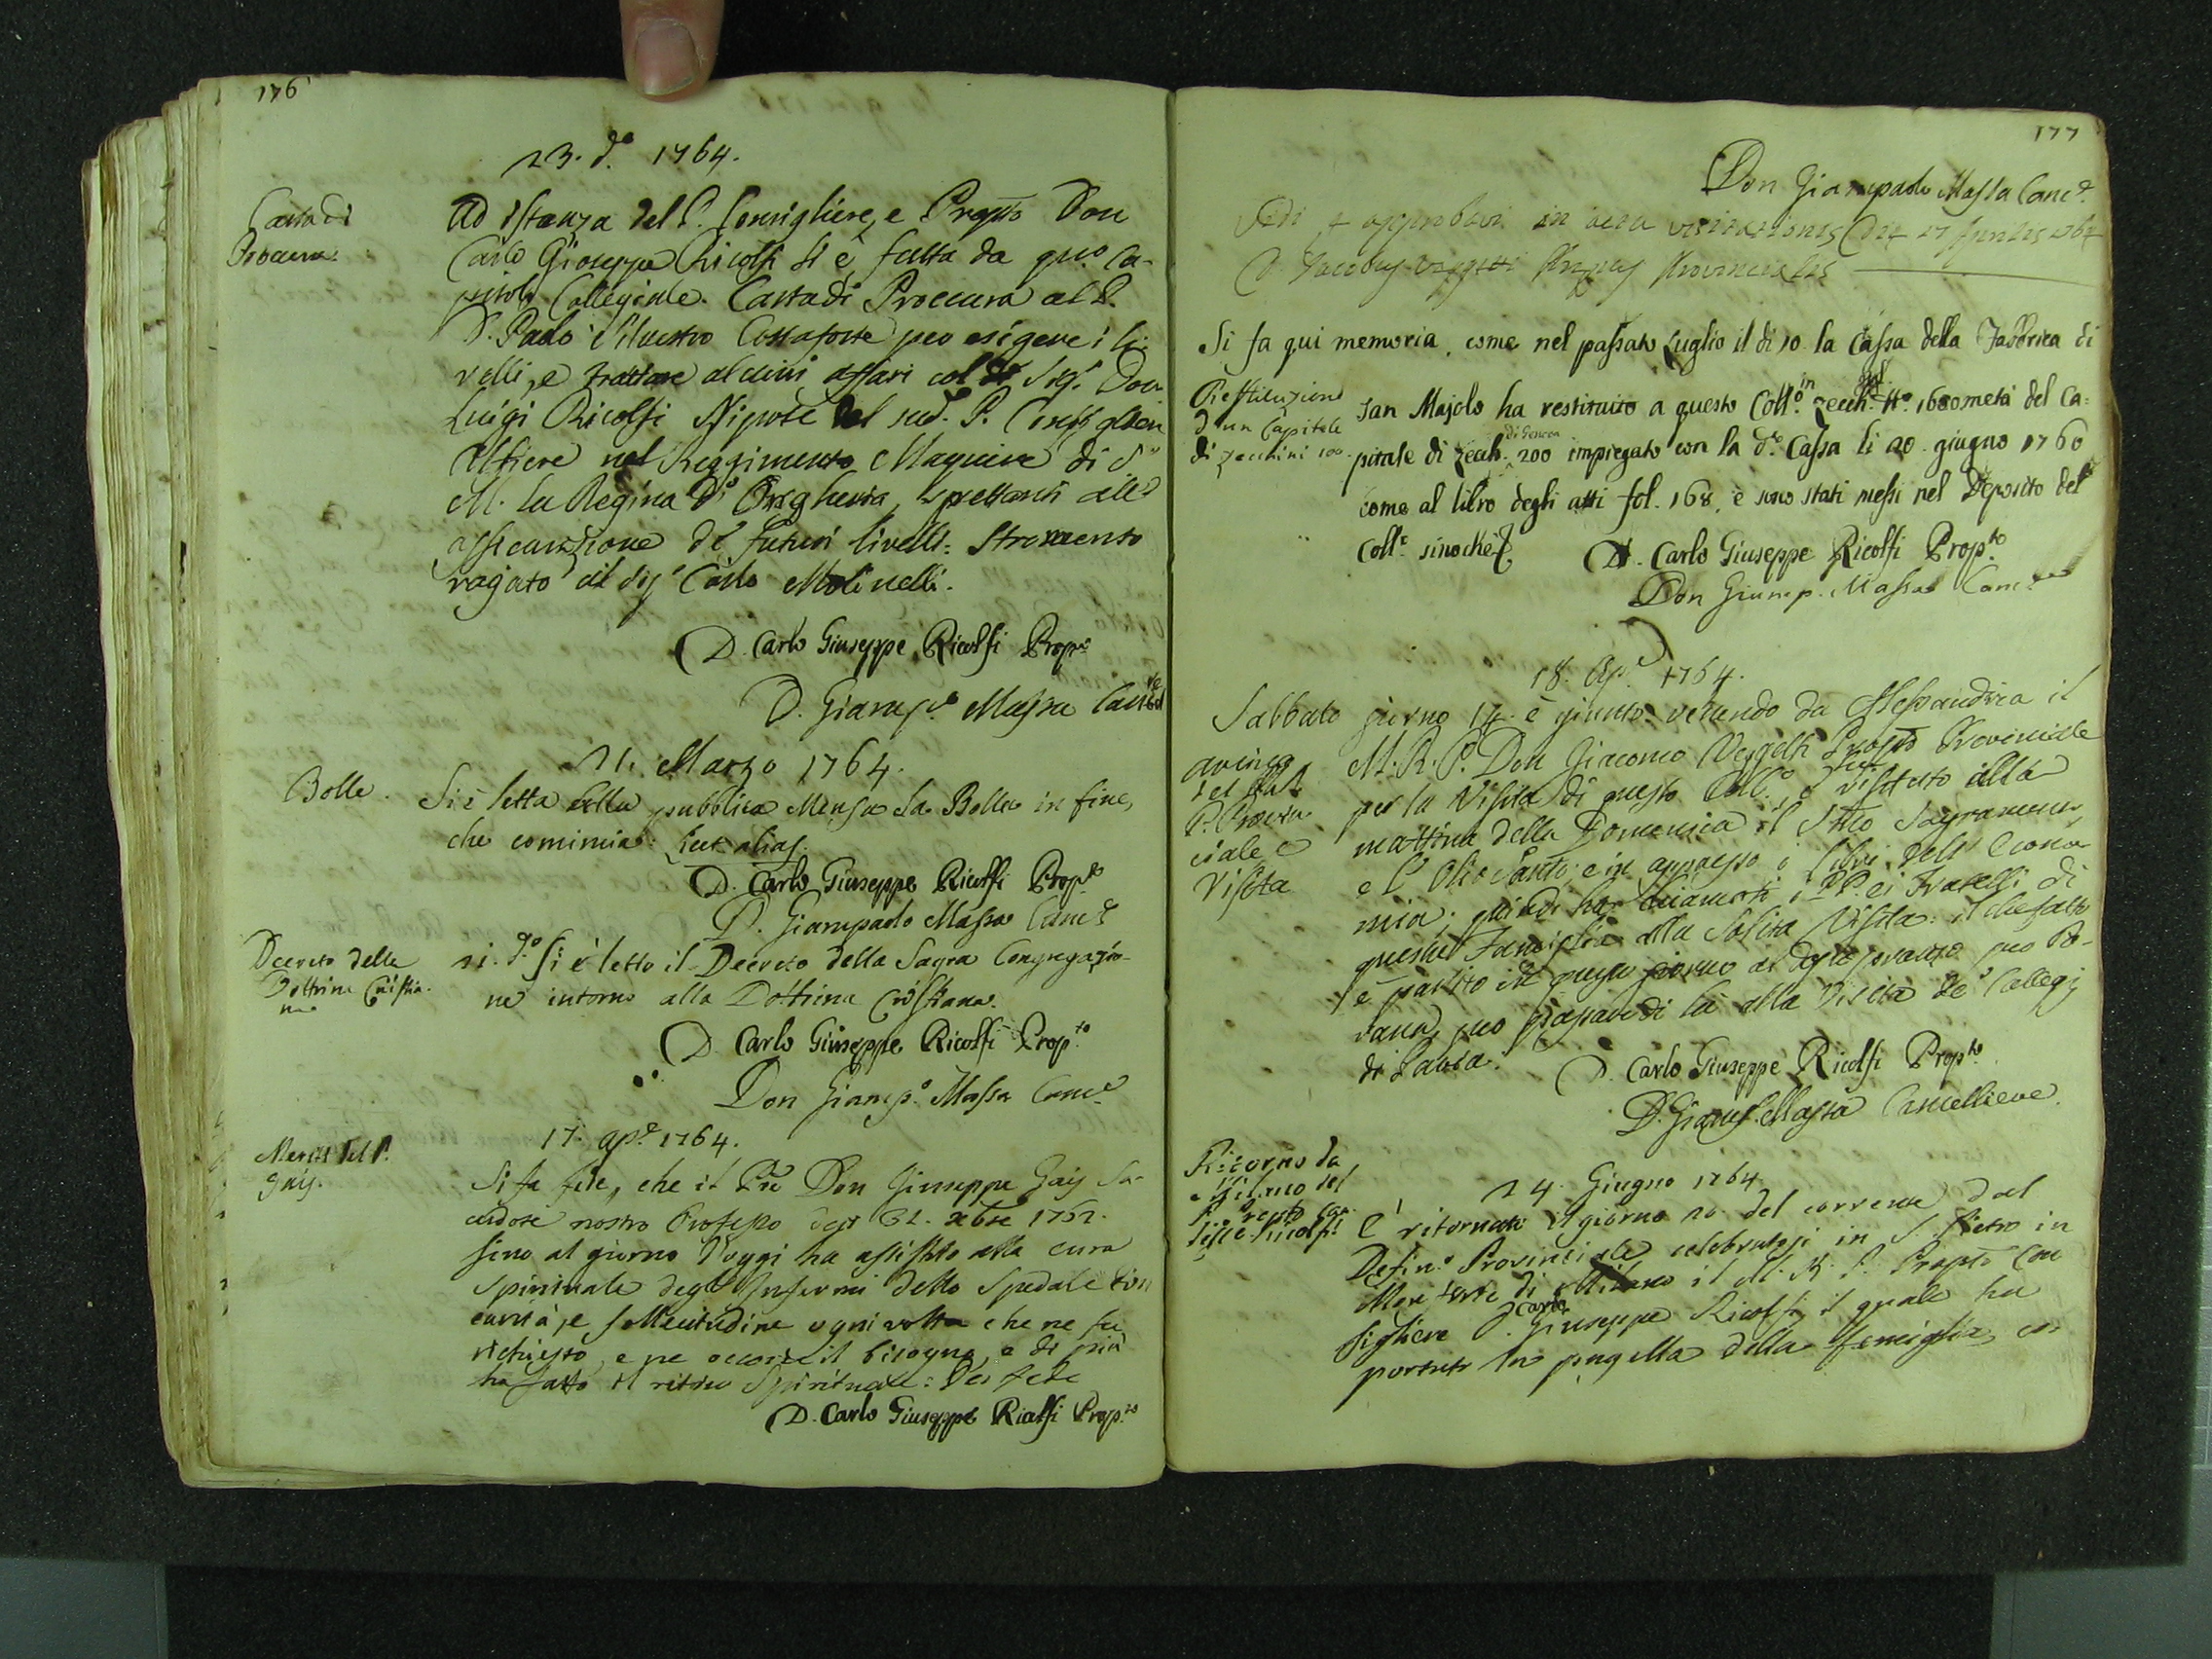 176
23. d.o 1764.
Carta di
Procura.
Ad istanza del P. Consigliere, e Prepto Don
Carlo Gioseppe Ricolfi si è fatta da qto Ca-
pitolo Collegiale. Carta di Procura al P.
D. Paolo Silvestro Costaforte per esigere i li-
velli, e trattare alcuni affari col Sig.r Don
Luigi Ricolfi Nipote del sud. P. Consigliere
Alfiere nel Reggimento di S.
M. la Regina d'Ongheria, spettanti all'
assicurazione de' futuri livelli: Stromento
rogato dal Sig.r Carlo Molinelli.
D. Carlo Giuseppe Ricolfi Prop.to
D. Giamp.o Massa Canc.re
21. Marzo 1764.
Bolle.
Si è letta alla pubblica Mensa la Bolla in fine,
che comincia: Sicut alias.
D. Carlo Giuseppe Ricolfi Prop.to
D. Giampaolo Massa Canc.e
Decreto della
Dottrina Cristia-
na
21. d.o Si è letto il Decreto della Sagra Congregazio-
ne intorno alla Dottrina Cristiana.
D. Carlo Giuseppe Ricolfi Prop.to
Don Giamp.o Massa Canc.e
17. ap.e 1764.
Meriti del P.
Gaij.
Si fa fede, che il Pre Don Giuseppe Gaij Sa-
cerdote nostro Professo dagi 31. xbre 1762.
sino al giorno d'oggi ha assistito alla cura
spirituale degl'Infermi dello Spedale con
carità, e sollecitudine ogni volta che ne fu
richiesto, e ne occorse il bisogno, e di più
ha fatto il ritiro Spirituale: In fede
D. Carlo Giuseppe Ricolfi Prop.to
177
Don Giampaolo Massa Canc.e
Vidi et approbavi in actu visitationis die 17 1764
D. Jacobus Veggetti Prepus Provincialis
Si fa qui memoria, come nel passato Luglio il dì 10 la Cassa della Fabbrica di
Restituzione
d'un Capitale
di zecchini 100.
San Majolo ha restituito a questo Coll.o in Zecch. 100 metà del Ca-
pitale di Zecch. di Genova 200 impiegato con la d.a Cassa li 20. giugno 1760
come al libro degli atti fol. 168, e sono stati messi nel Deposito del
Coll.o sinochè &
D. Carlo Giuseppe Ricolfi Prop.to
Don Giamp. Massa Canc.re
18. Ap.e 1764.
Sabbato giorno 14. è giunto venendo da Alessandria il
Arrivo
del M.R.
P. Provin-
ciale e
Visita
M. R. P. Don Giacomo Veggetti Propto Provinciale
per la Visita di questo Coll.o, e visitato alla
mattina della Domenica il Smo Sagramento,
e l'Olio Santo; e in appresso i libri dell'Econo-
mia; quindi ha chiamati i PP. ei Fratelli di
questa Famiglia alla solita Visita: il che fatto
è partito in questo giorno al dopo pranzo per
per passare di là alla Visita de' Collegj
di Pavia.
D. Carlo Giuseppe Ricolfi Prop.to
D. Giamp. Massa Cancelliere.
24. Giugno 1764.
Ritorno da
Milano del
P. Prepto Con-
sigl.e Ricolfi
È ritornato il giorno 20. del corrente dal
Defin.o Provinciale celebratosi in S. Pietro in
di Milano il M. R. P. Propto Con-
sigliere D. Carlo Giuseppe Ricolfi, il quale ha
portato la pagella della famiglia, co-